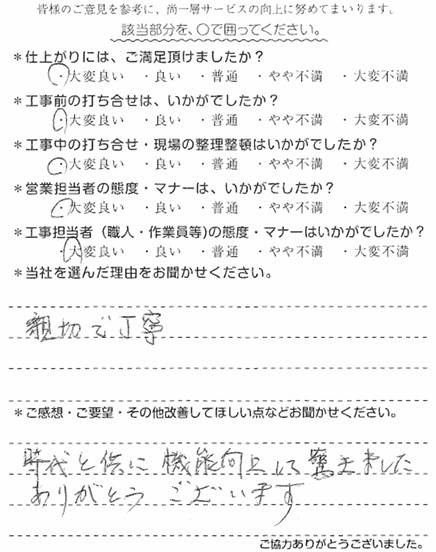 皆様のご意見を参考に、尚一層サービスの向上に努めてまいります。
該当部分を、○で囲ってください。
*仕上がりには、ご満足頂けましたか？
・大変良い ・良い ・普通 ・やや不満 ・大変不満
*工事前の打ち合せは、いかがでしたか？
・大変良い ・良い ・普通 ・やや不満 ・大変不満
*工事中の打ち合せ・現場の整理整頓はいかがでしたか？
・大変良い ・良い ・普通 ・やや不満 ・大変不満
*営業担当者の態度・マナーは、いかがでしたか？
・大変良い ・良い ・普通 ・やや不満 ・大変不満
*工事担当者（職人・作業員等)の態度・マナーはいかがでしたか？
・大変良い ・良い ・普通 ・やや不満 ・大変不満
*当社を選んだ理由をお聞かせください。
親切で丁寧
*ご感想・ご要望・その他改善してほしい点などお聞かせください。
時代と供に機能向上して驚きました
ありがとうございます
ご協力ありがとうございました。